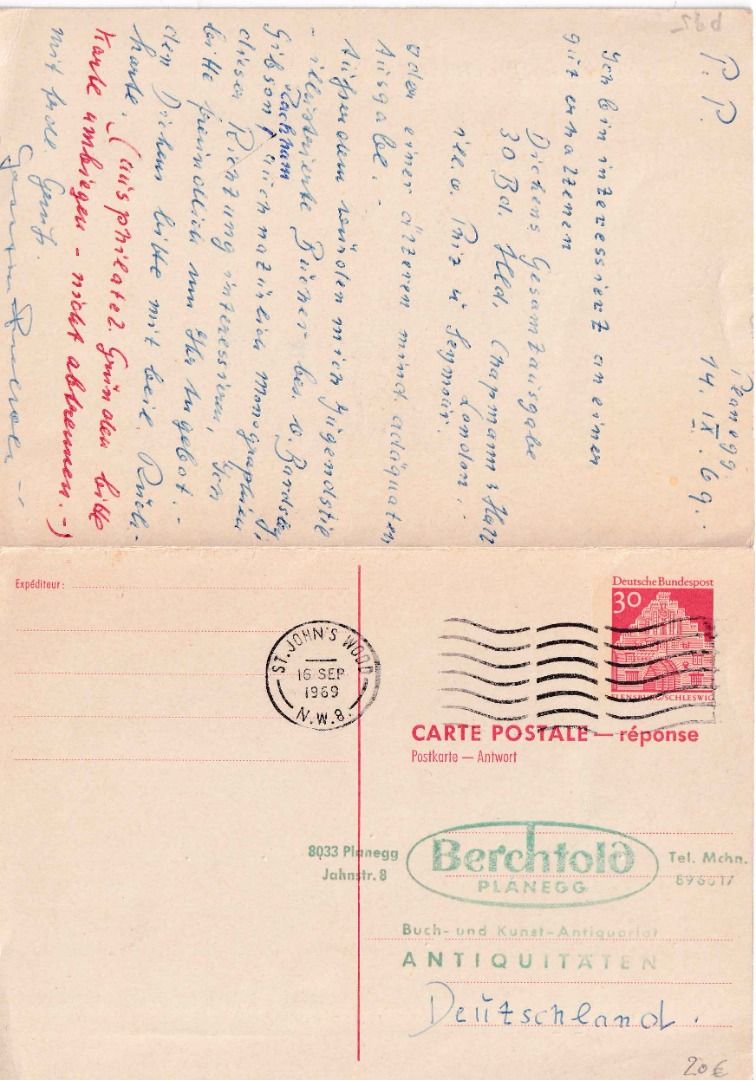 P.P.
Planegg
14. IX. 69.
Ich bin interessiert an einer
gut erhaltenen
Dickens Gesamtausgabe
30 Bd. Hld. Chapmann & Hall
London.
illo. Phiz u Seymour.
oder einer älteren mind. adäquaten
Ausgabe. -
Außerdem würden mich Jugendstil
- illustrierte Bücher bes. v.
Gibson, Rackham auch natürlich Monographien
dieser Richtung interessieren,
bitte freundlich um Ihr Angebot. -
den Dickens bitte mit beil. Rück-
karte. (aus philatel. Gründen bitte
Karte umbiegen - nicht abtrennen. -)
mit frdl. Gruß.
Expéditeur:
ST. JOHN'S WOOD
16 SEP
1969
N.W.8.
Deutsche Bundespost
30
FLENSBURG/SCHLESWIG
CARTE POSTALE — réponse
Postkarte — Antwort
8033 Planegg
Jahnstr. 8
Berchtold
PLANEGG
Tel. Mchn.
Buch- und Kunst-Antiquariat
ANTIQUITÄTEN
Deutschland.
20 €